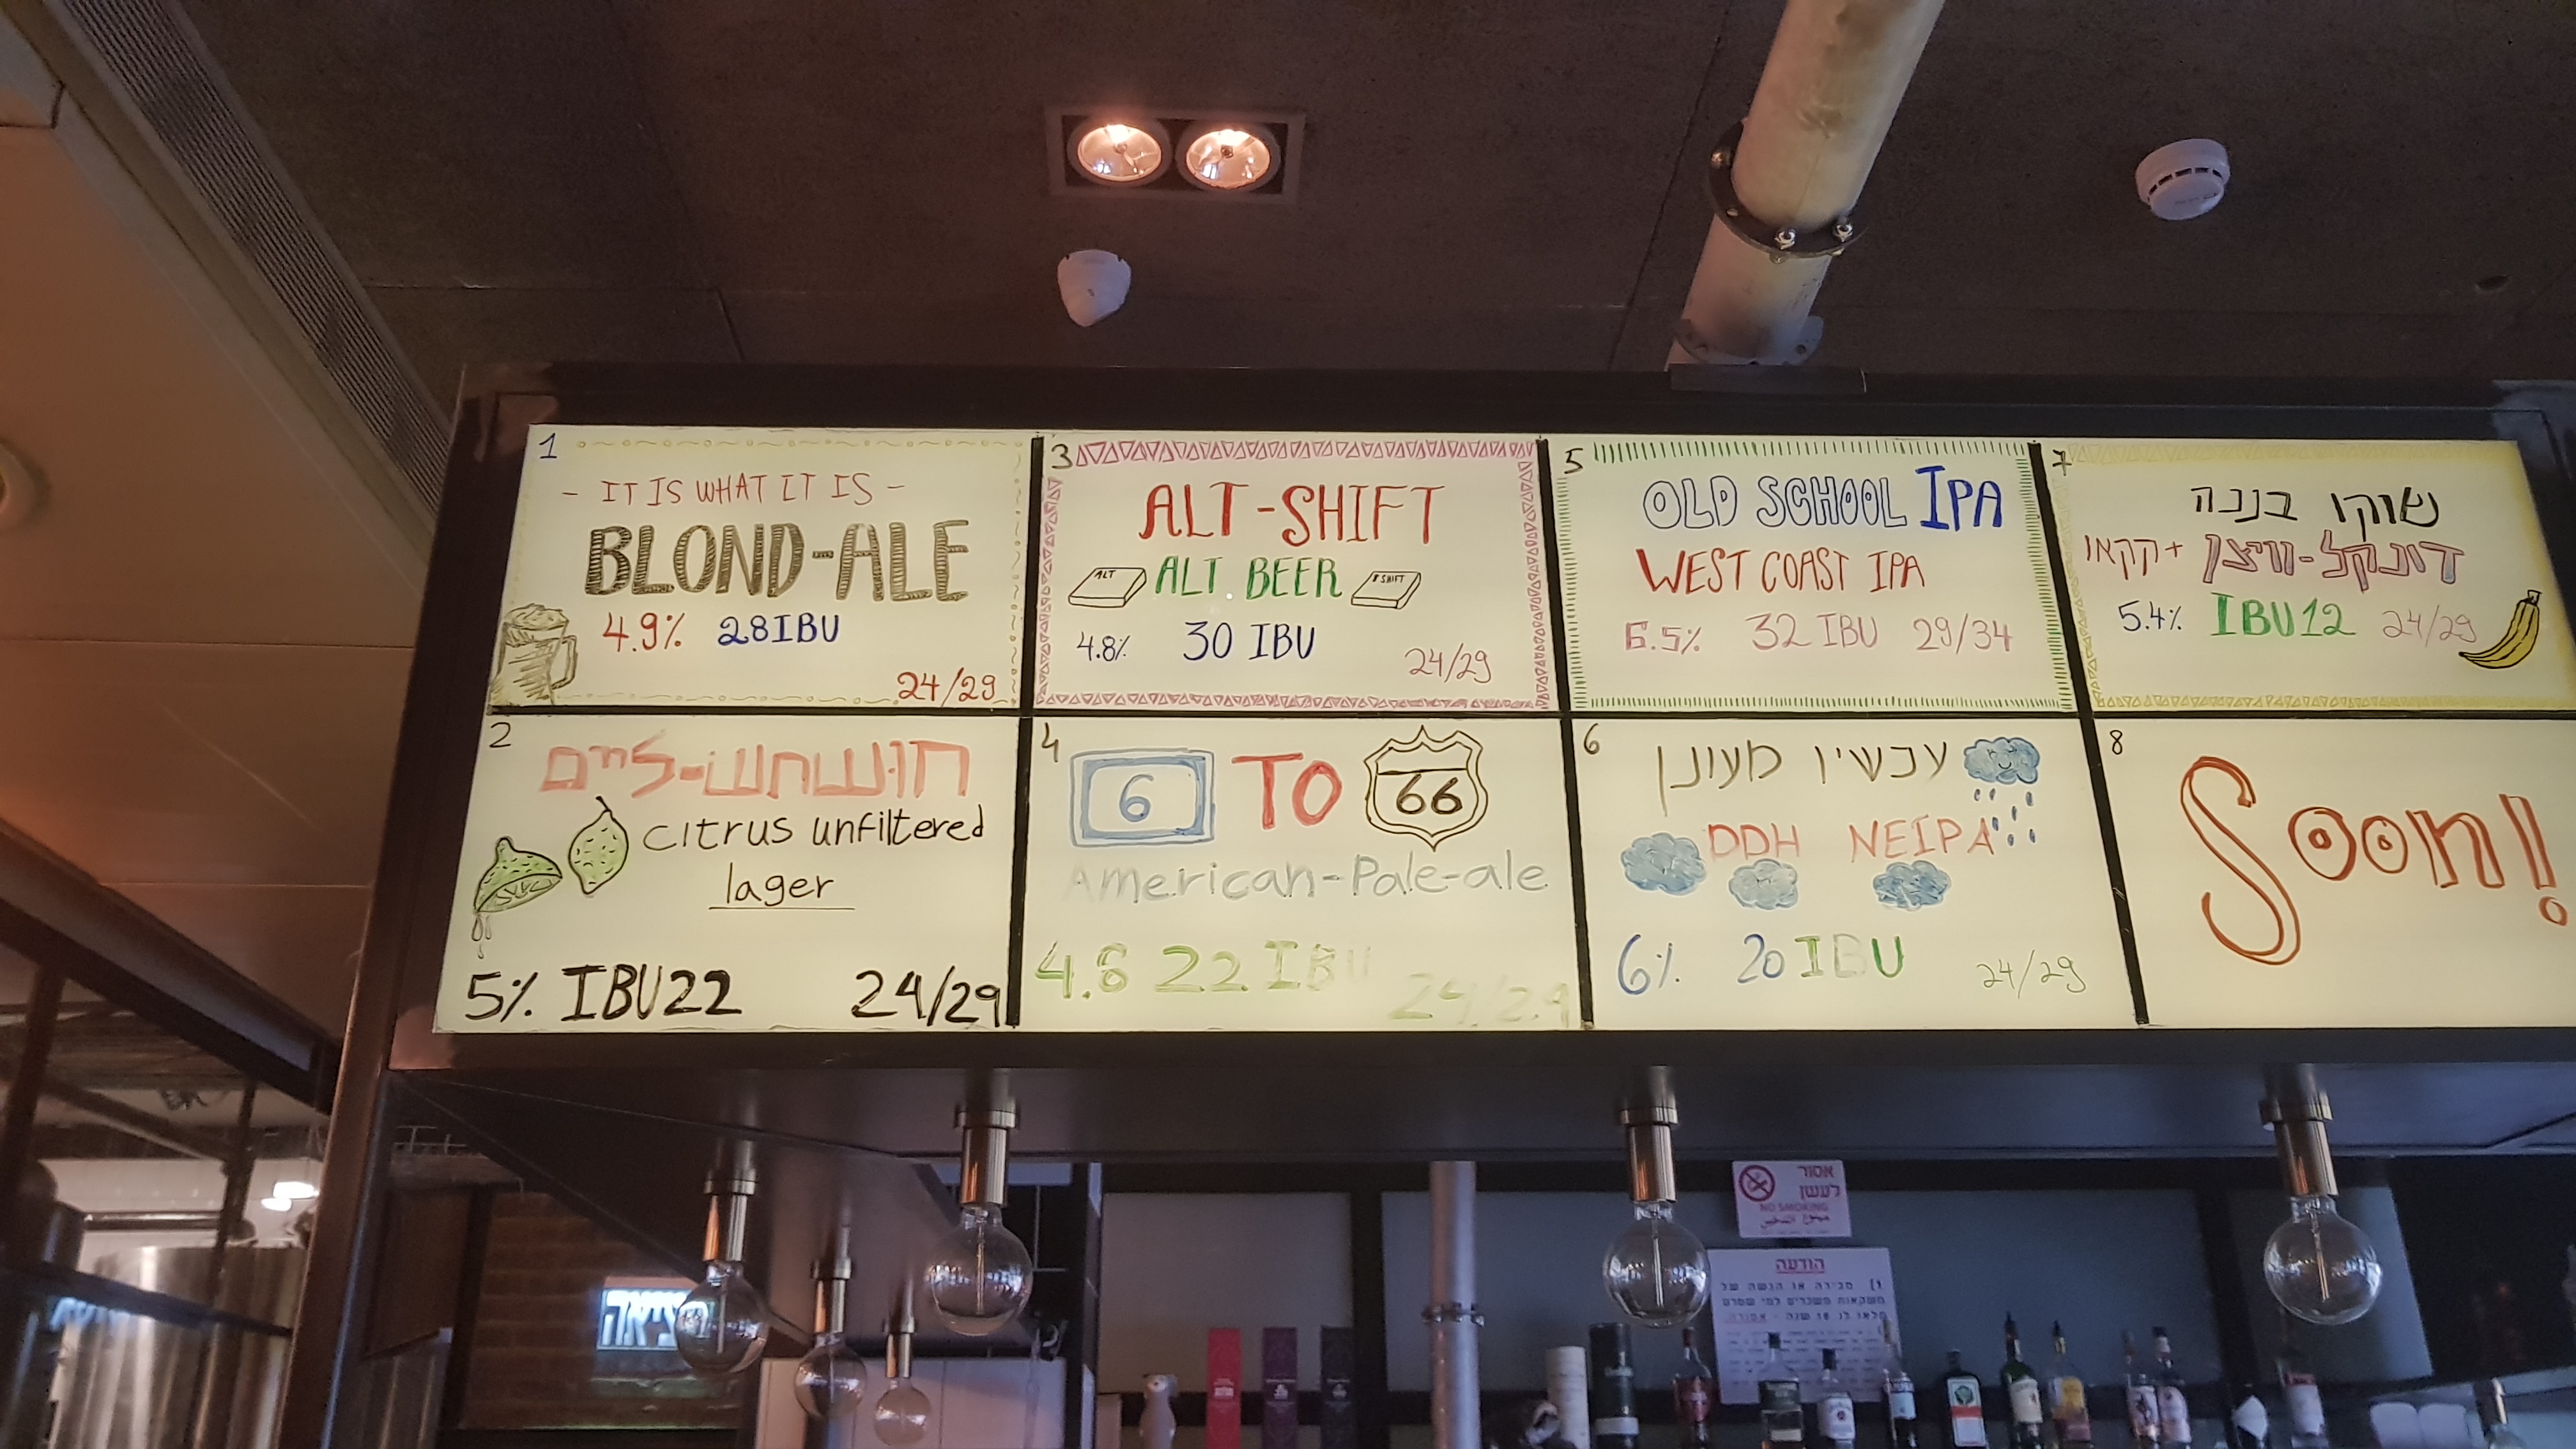 1
- IT IS WHAT IT IS -
BLOND-ALE
4.9% 28IBU
24/29
2
חושחש-ליים
citrus unfiltered
lager
5% IBU22 24/29
3
ALT-SHIFT
ALT ALT. BEER SHIFT
4.8% 30 IBU 24/29
4
6 TO 66
American-Pale-ale
4.8 22 IBU
24/29
5
OLD SCHOOL IPA
WEST COAST IPA
6.5% 32 IBU 29/34
6
עכשיו מעונן
DDH NEIPA
6% 20 IBU 24/29
7
שוקו בננה
דונקל-וויצן + קקאו
5.4% IBU12 24/29
8
Soon!
אסור
לעשן
NO SMOKING
הודעה
1) מכירה או הגשה של
משקאות משכרים למי שטרם
מלאו לו 18 שנה - אסורה.
יציאה